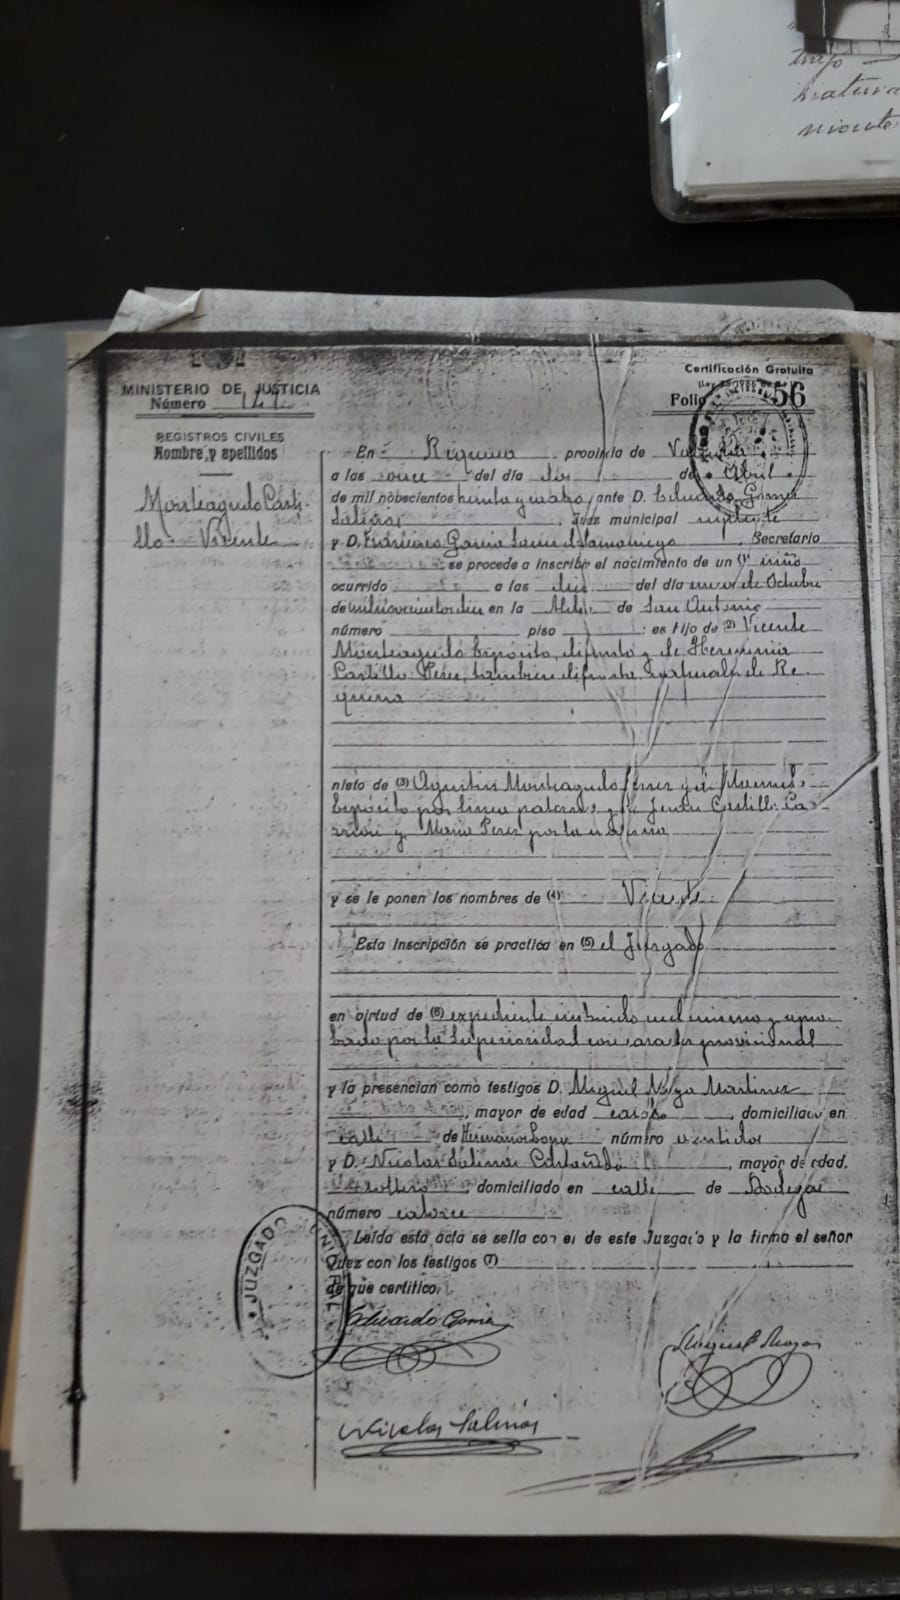 trajo
natural
MINISTERIO DE JUSTICIA
Número
REGISTROS CIVILES
Nombre y apellidos
Monteagudo Casti-
llo Vicente
Certificación Gratuita
Folio 56
En Requena provincia de Valencia
a las once del día dos de Abril
de mil nobecientos treinta y cuatro, ante D. Eduardo Gómez
Salinas, Juez municipal suplente
y D. Francisco García Secretario
se procede a inscribir el nacimiento de un (1) niño
ocurrido a las seis del día nueve de Octubre
de mil novecientos diez en la Aldea de San Antonio
número piso ; es hijo de (2) Vicente
Monteagudo Expósito, difunto y de Herminia
Castillo Pérez, también difunta, naturales de Re-
quena
nieto de (3) Agustín Monteagudo Ferrer y de
Expósito por línea paterna, y de Juan Castillo Ca-
rrión y María Pérez por la materna
y se le ponen los nombres de (4) Vicente
Esta inscripción se practica en (5) el Juzgado
en virtud de (6) expediente instruido en el mismo y apro-
bado por la Superioridad con carácter provisional
y la presencian como testigos D. Miguel Martínez
, mayor de edad casado, domiciliado en
calle de número veintidos
y D. Nicolás Salinas Castañeda, mayor de edad,
soltero, domiciliado en calle de Bodegas
número catorce
Leída esta acta se sella con el de este Juzgado y la firma el señor
Juez con los testigos (7)
de que certifico.
JUZGADO
Eduardo Gómez
Miguel
Nicolás Salinas